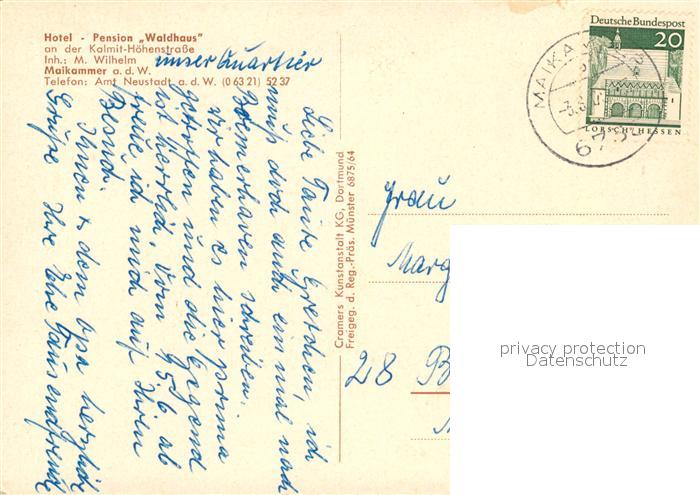 Hotel - Pension „Waldhaus"
an der Kalmit-Höhenstraße
Inh.: M. Wilhelm
Maikammer a. d. W.
Telefon: Amt Neustadt a. d. W. (0 63 21) 52 37
unser Quartier
Liebe Tante Gretchen, ich
muß doch auch einmal nach
Bremerhaven schreiben.
Wir haben es hier prima
getroffen und die Gegend
ist herrlich. Vom 9.5.6 ab
freue ich mich auf Ihren
Besuch.
Ihnen & dem Opa herzliche
Grüße Ihre
Cramers Kunstanstalt KG, Dortmund
Freigeg. d. Reg.-Präs. Münster 6875/64
Deutsche Bundespost
20
LORSCH/HESSEN
MAIKA
67
Frau
Marg
28 B
privacy protection
Datenschutz